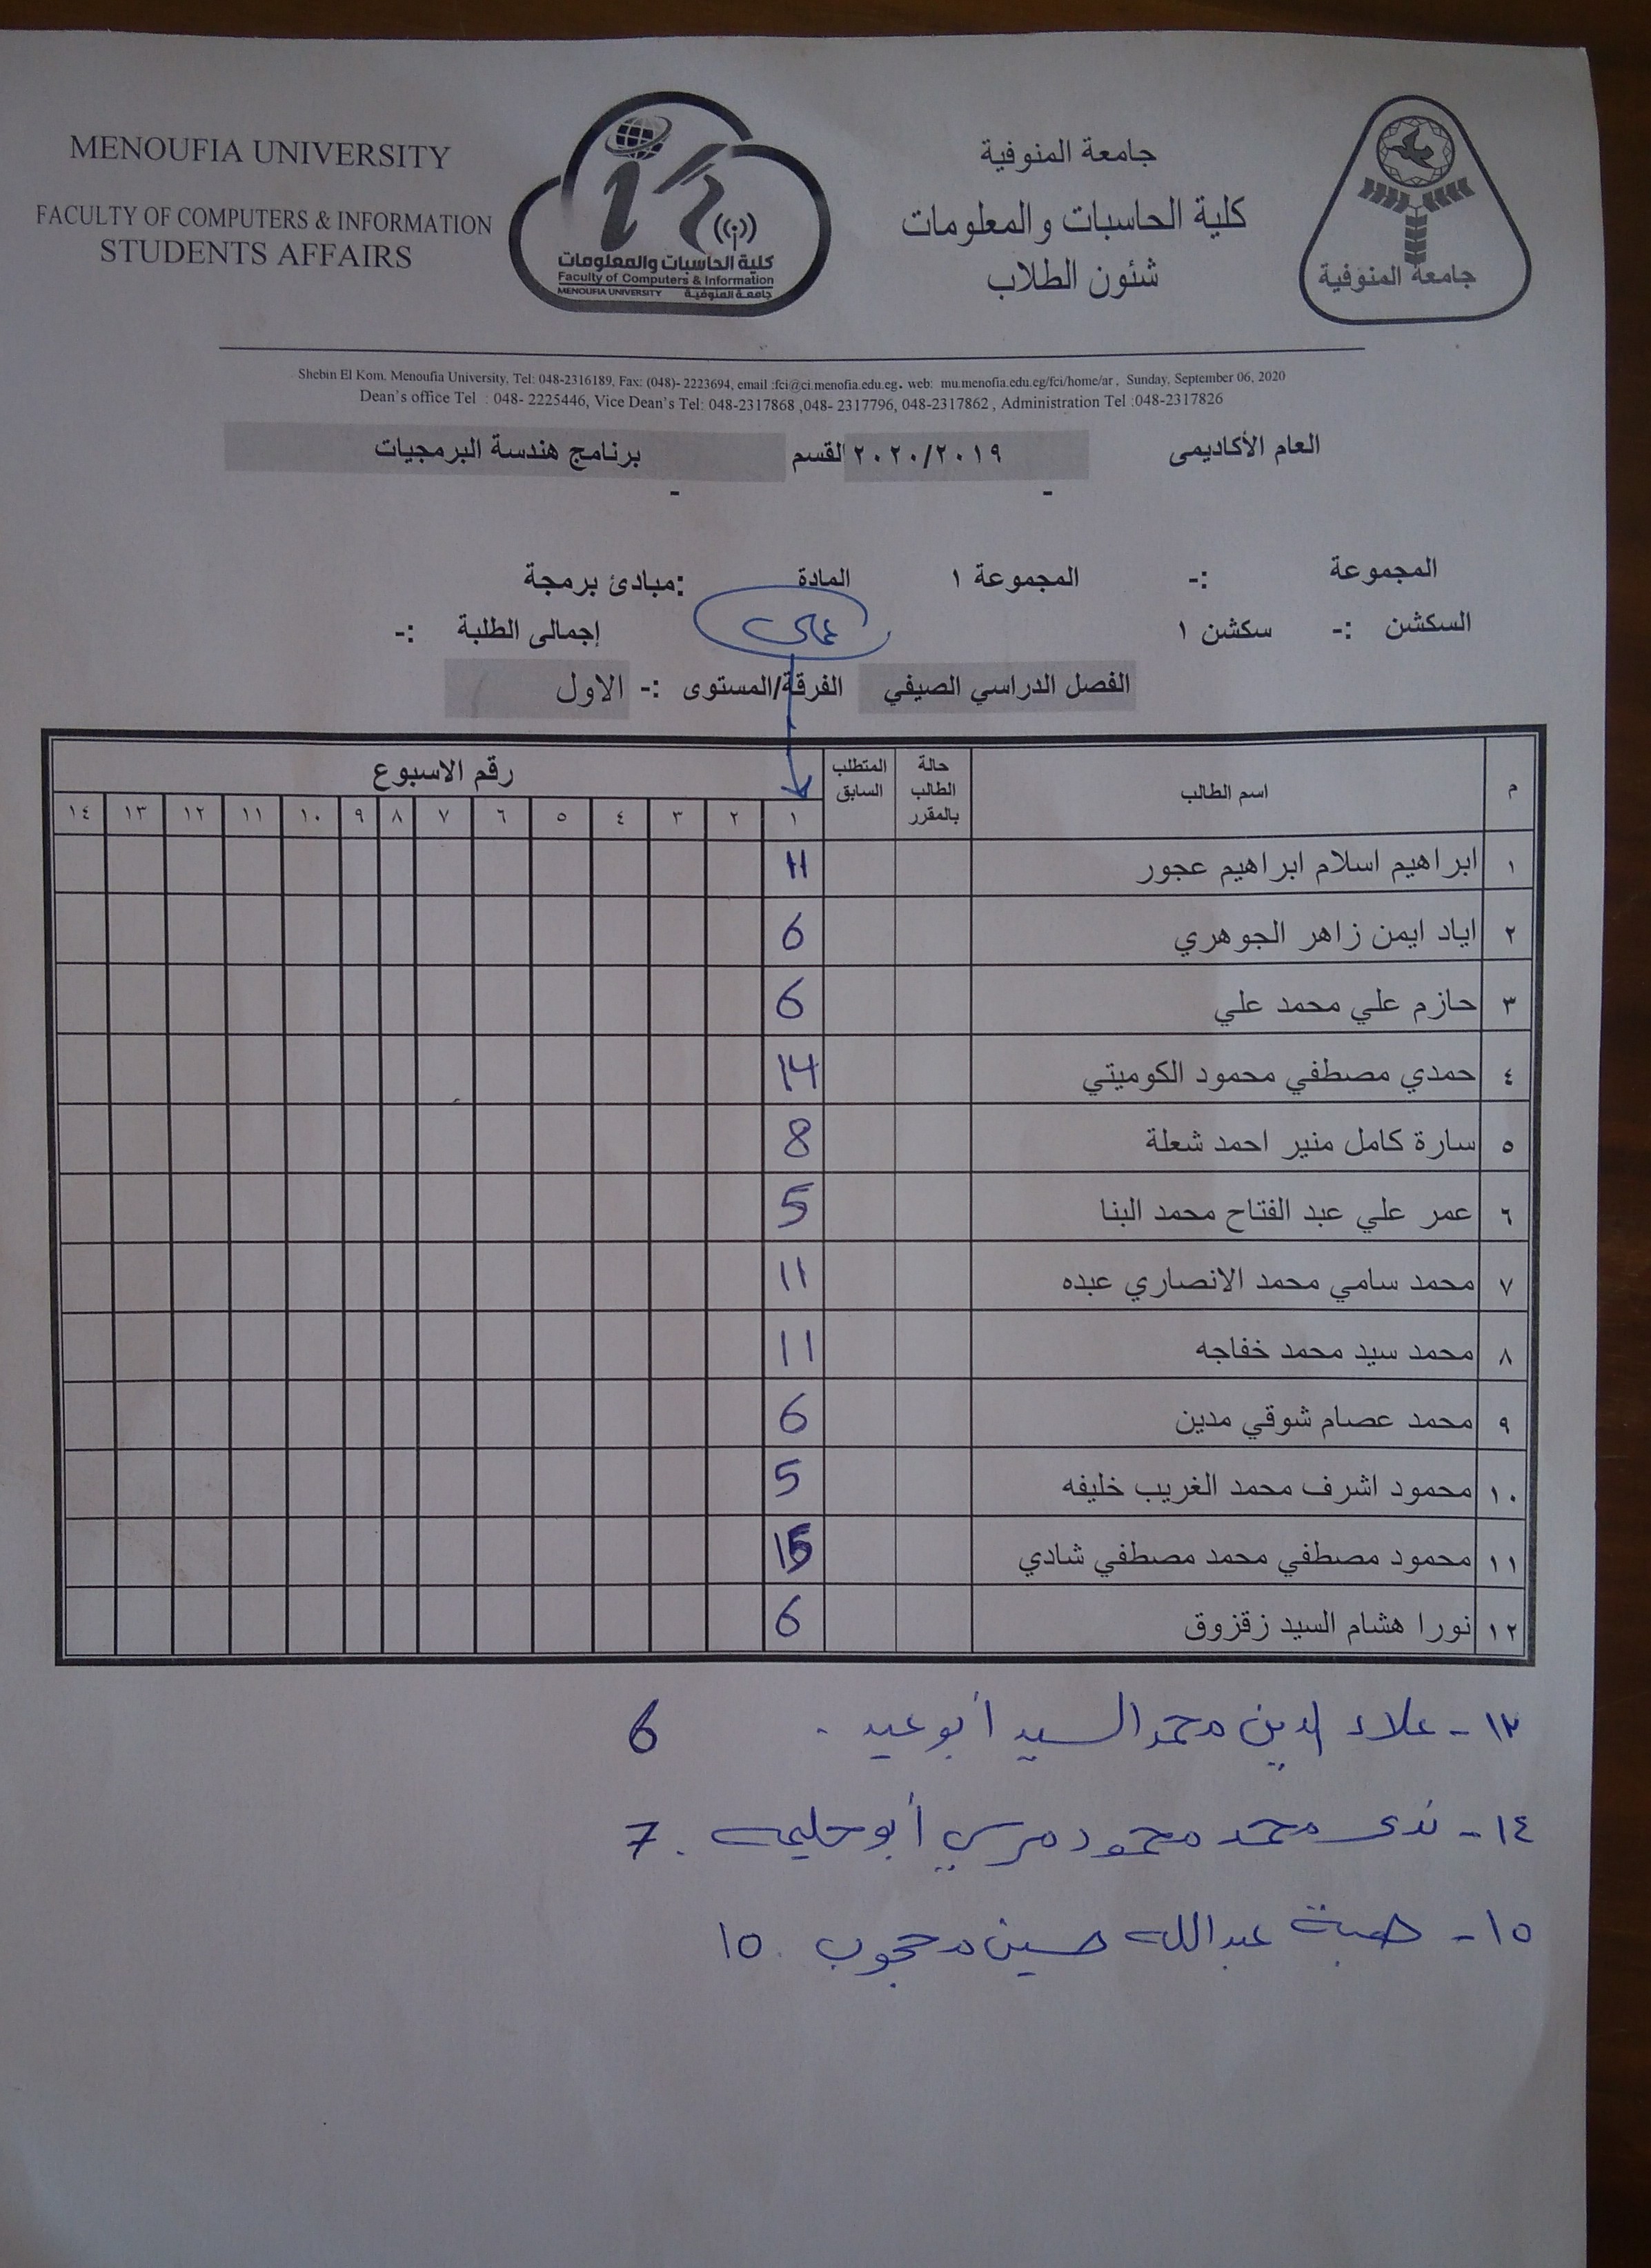 MENOUFIA UNIVERSITY
FACULTY OF COMPUTERS & INFORMATION
STUDENTS AFFAIRS
كلية الحاسبات والمعلومات
Faculty of Computers & Information
MENOUFIA UNIVERSITY جامعة المنوفية
جامعة المنوفية
كلية الحاسبات والمعلومات
شئون الطلاب
جامعة المنوفية
Shebin El Kom, Menoufia University, Tel: 048-2316189, Fax: (048)- 2223694, email :fci@ci.menofia.edu.eg. web: mu.menofia.edu.eg/fci/home/ar , Sunday, September 06, 2020
Dean's office Tel : 048- 2225446, Vice Dean's Tel: 048-2317868 ,048- 2317796, 048-2317862 , Administration Tel :048-2317826
العام الأكاديمى ٢٠٢٠/٢٠١٩ القسم برنامج هندسة البرمجيات
- -
المجموعة :- المجموعة ١ المادة :مبادئ برمجة
السكشن :- سكشن ١ عملى إجمالى الطلبة :-
الفصل الدراسي الصيفي الفرقة/المستوى :- الاول
م اسم الطالب حالة الطالب بالمقرر المتطلب السابق رقم الاسبوع
١ ٢ ٣ ٤ ٥ ٦ ٧ ٨ ٩ ١٠ ١١ ١٢ ١٣ ١٤
١ ابراهيم اسلام ابراهيم عجور 11
٢ اياد ايمن زاهر الجوهري 6
٣ حازم علي محمد علي 6
٤ حمدي مصطفي محمود الكوميتي 14
٥ سارة كامل منير احمد شعلة 8
٦ عمر علي عبد الفتاح محمد البنا 5
٧ محمد سامي محمد الانصاري عبده 11
٨ محمد سيد محمد خفاجه 11
٩ محمد عصام شوقي مدين 6
١٠ محمود اشرف محمد الغريب خليفه 5
١١ محمود مصطفي محمد مصطفي شادي 15
١٢ نورا هشام السيد زقزوق 6
١٣- علاء الدين محمد السيد أبو عيد . 6
١٤- ندى محمد محمود مرسي أبو حليمه . 7
١٥- هبة عبدالله حسين محجوب . ١٥